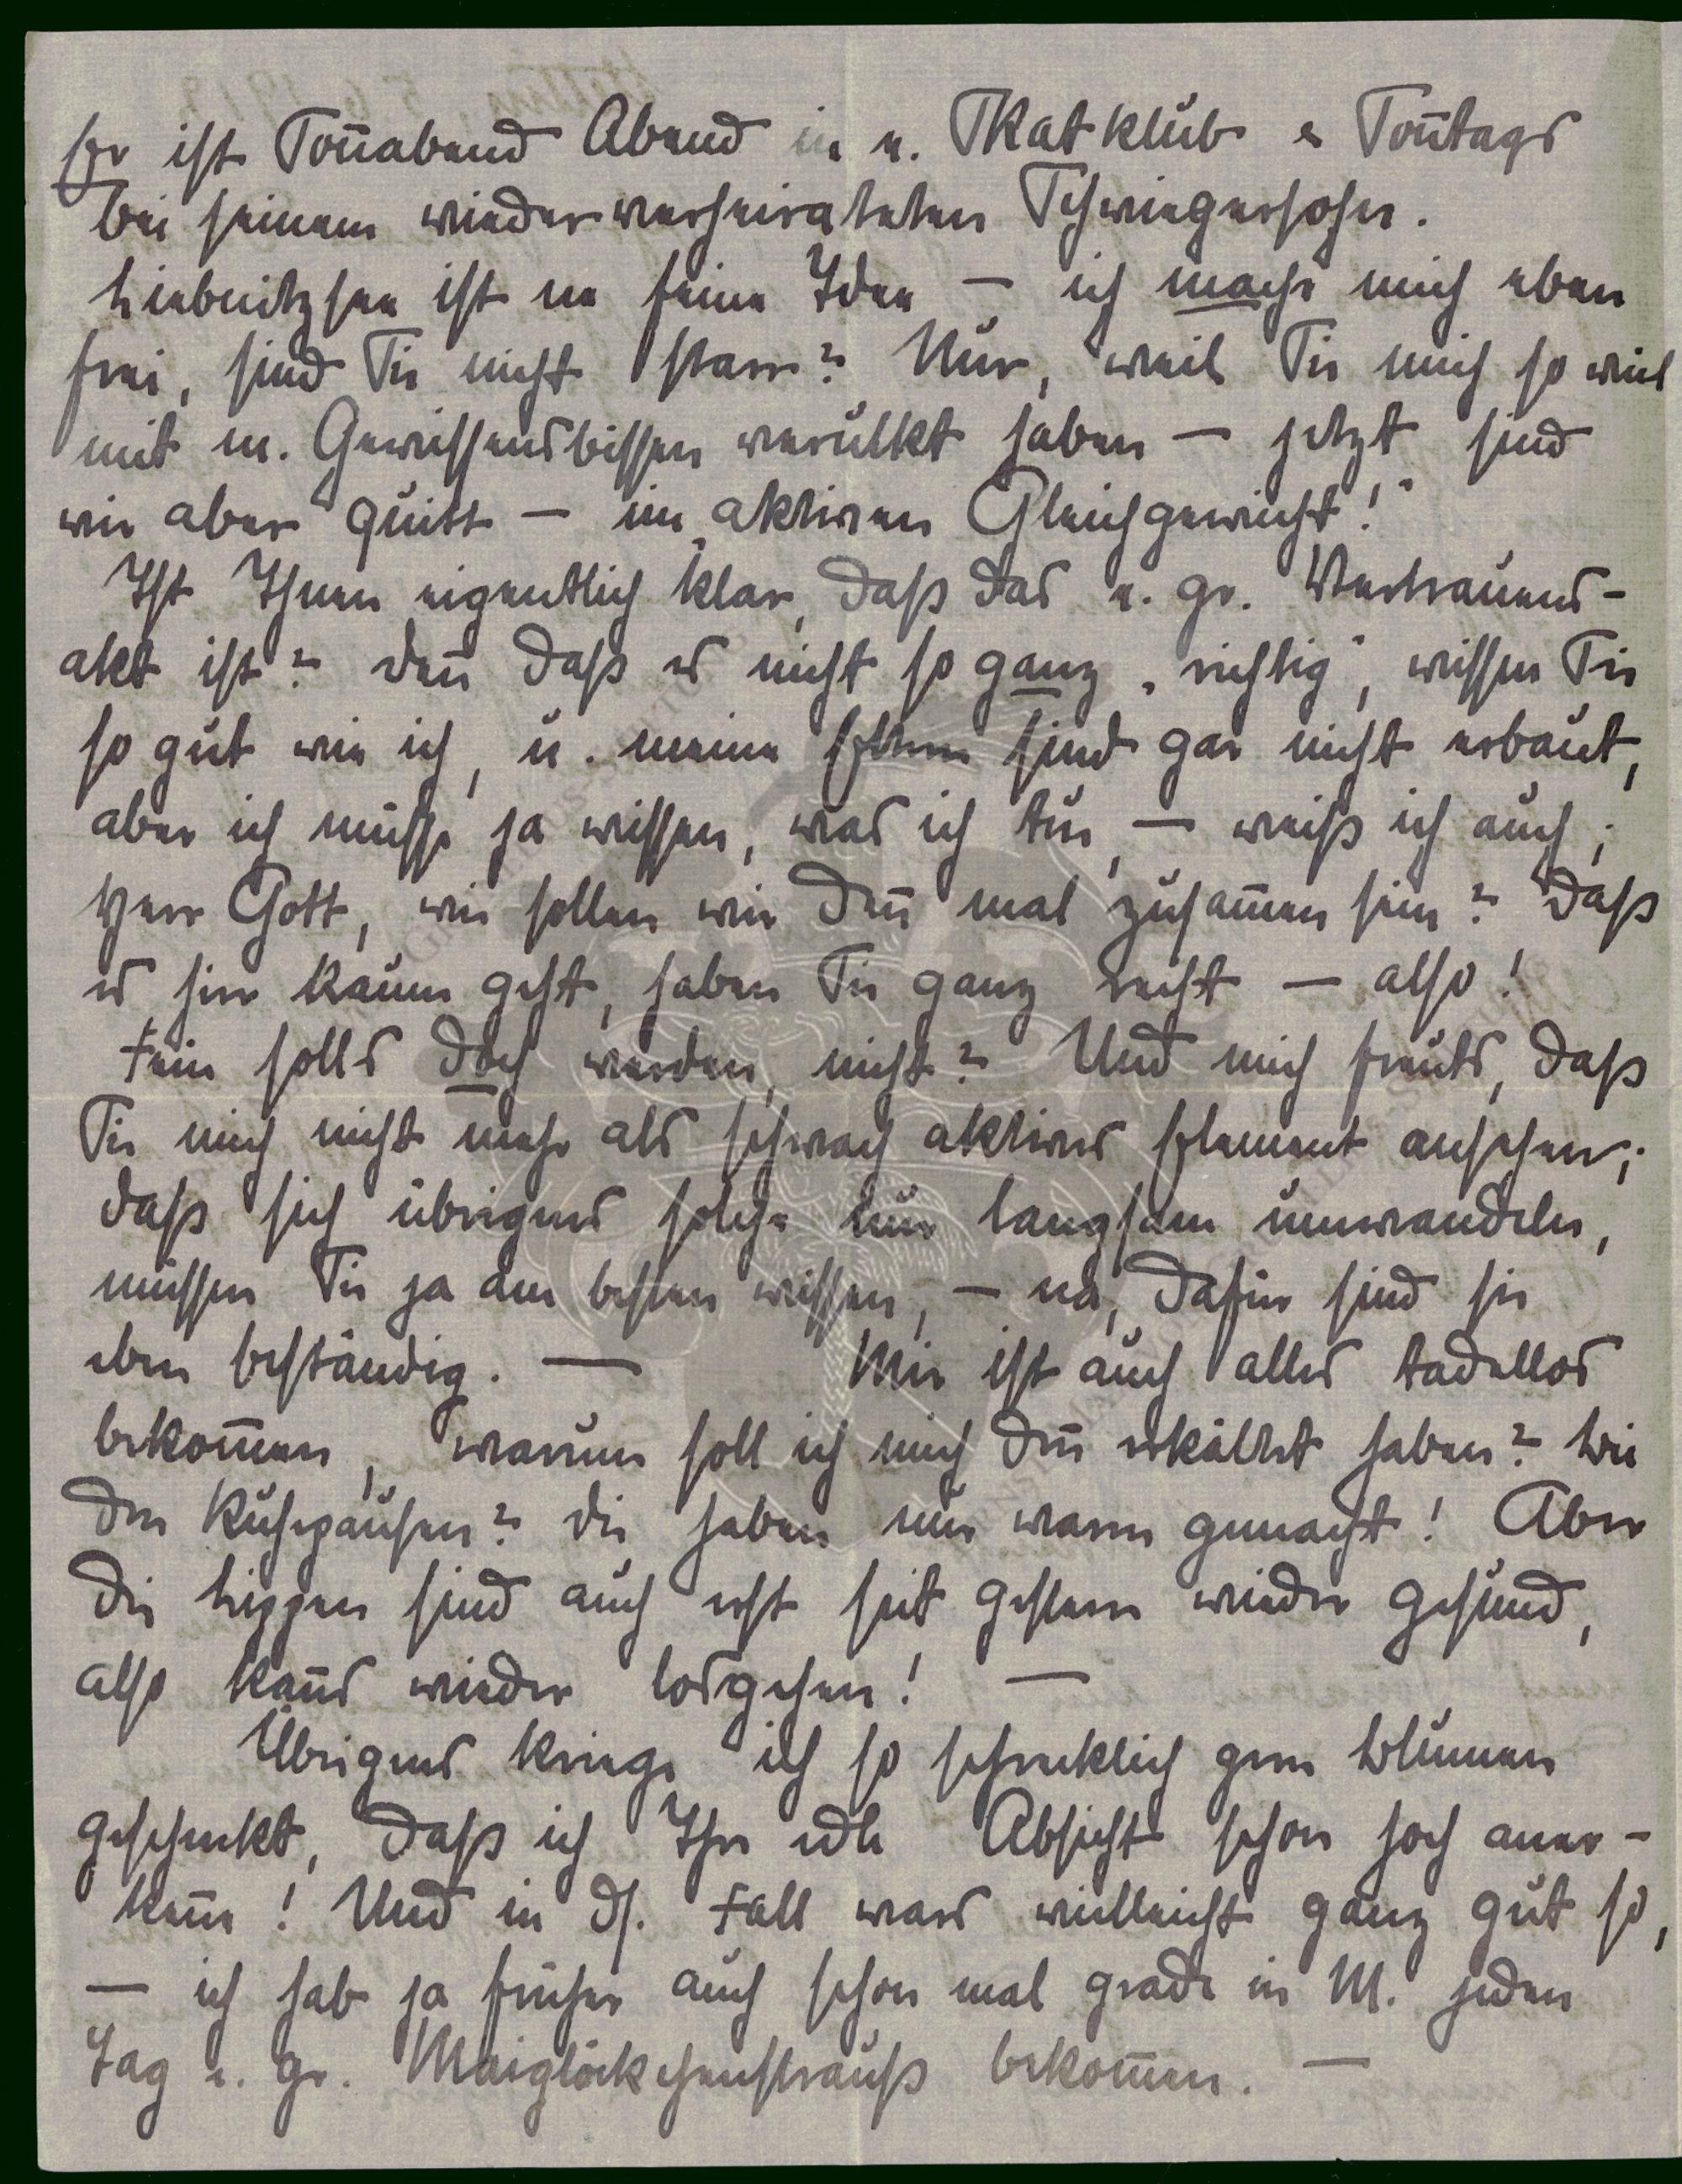 Er ist Sonnabend Abend in e. Skatklub & Sonntags
bei seinem wiederverheirateten Schwiegersohn.
Liebnitzsee ist ne feine Idee — ich mache mich eben
frei, sind Sie nicht starr? Nur, weil Sie mich so viel
mit m. Gewissensbissen verulkt haben — jetzt sind
wir aber quitt — im „aktiven Gleichgewicht!"
Ist Ihnen eigentlich klar, daß das e. gr. Vertrauens-
akt ist? den̄ daß es nicht so ganz „richtig", wissen Sie
so gut wie ich, u. meine Eltern sind gar nicht erbaut,
aber ich müsse ja wissen, was ich tue, — weiß ich auch;
Herr Gott, wie sollen wir den̄ mal zusam̄en sein? Daß
es hier kaum geht, haben Sie ganz recht — also!
Fein solls doch werden, nicht? Und mich freuts, daß
Sie mich nicht mehr als schwach aktives Element ansehen;
daß sich übrigens solche nur langsam umwandeln,
müssen Sie ja am besten wissen, — na, dafür sind sie
eben beständig. — Mir ist auch alles tadellos
bekom̄en, warum soll ich mich den̄ erkältet haben? Bei
den Ruhepausen? die haben nur warm gemacht! Aber
die Lippen sind auch erst seit gestern wieder gesund,
also kan̄s wieder losgehen! —
Übrigens kriege ich so schrecklich gern Blumen
geschenkt, daß ich Ihre edle Absicht schon hoch aner-
ken̄e! Und in ds. Fall wars vielleicht ganz gut so,
— ich hab ja früher auch schon mal grade in M. jeden
Tag e. gr. Maiglöckchenstrauß bekom̄en. —